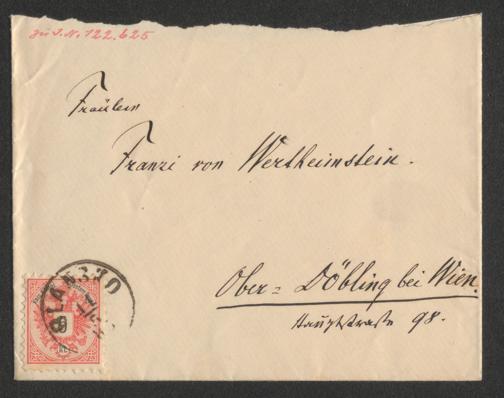 zu I.N. 122.625
Fräulein
Franzi von Wertheimstein.
Ober-Döbling bei Wien.
Hauptstraße 98.
5